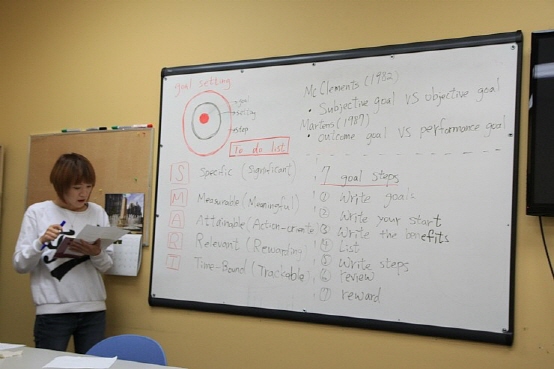 goal setting
goal
setting
step
To do list
S Specific (Significant)
M Measurable (Meaningful)
A Attainable (Action-oriente
R Relevant (Rewarding
T Time-Bound (Trackable)
McClements (1982)
• Subjective goal VS objective goal
Martens (1987)
• Outcome goal VS performance goal
7 goal steps
① Write goals
② Write your start
③ Write the benefits
④ List
⑤ Write steps
⑥ review
⑦ reward